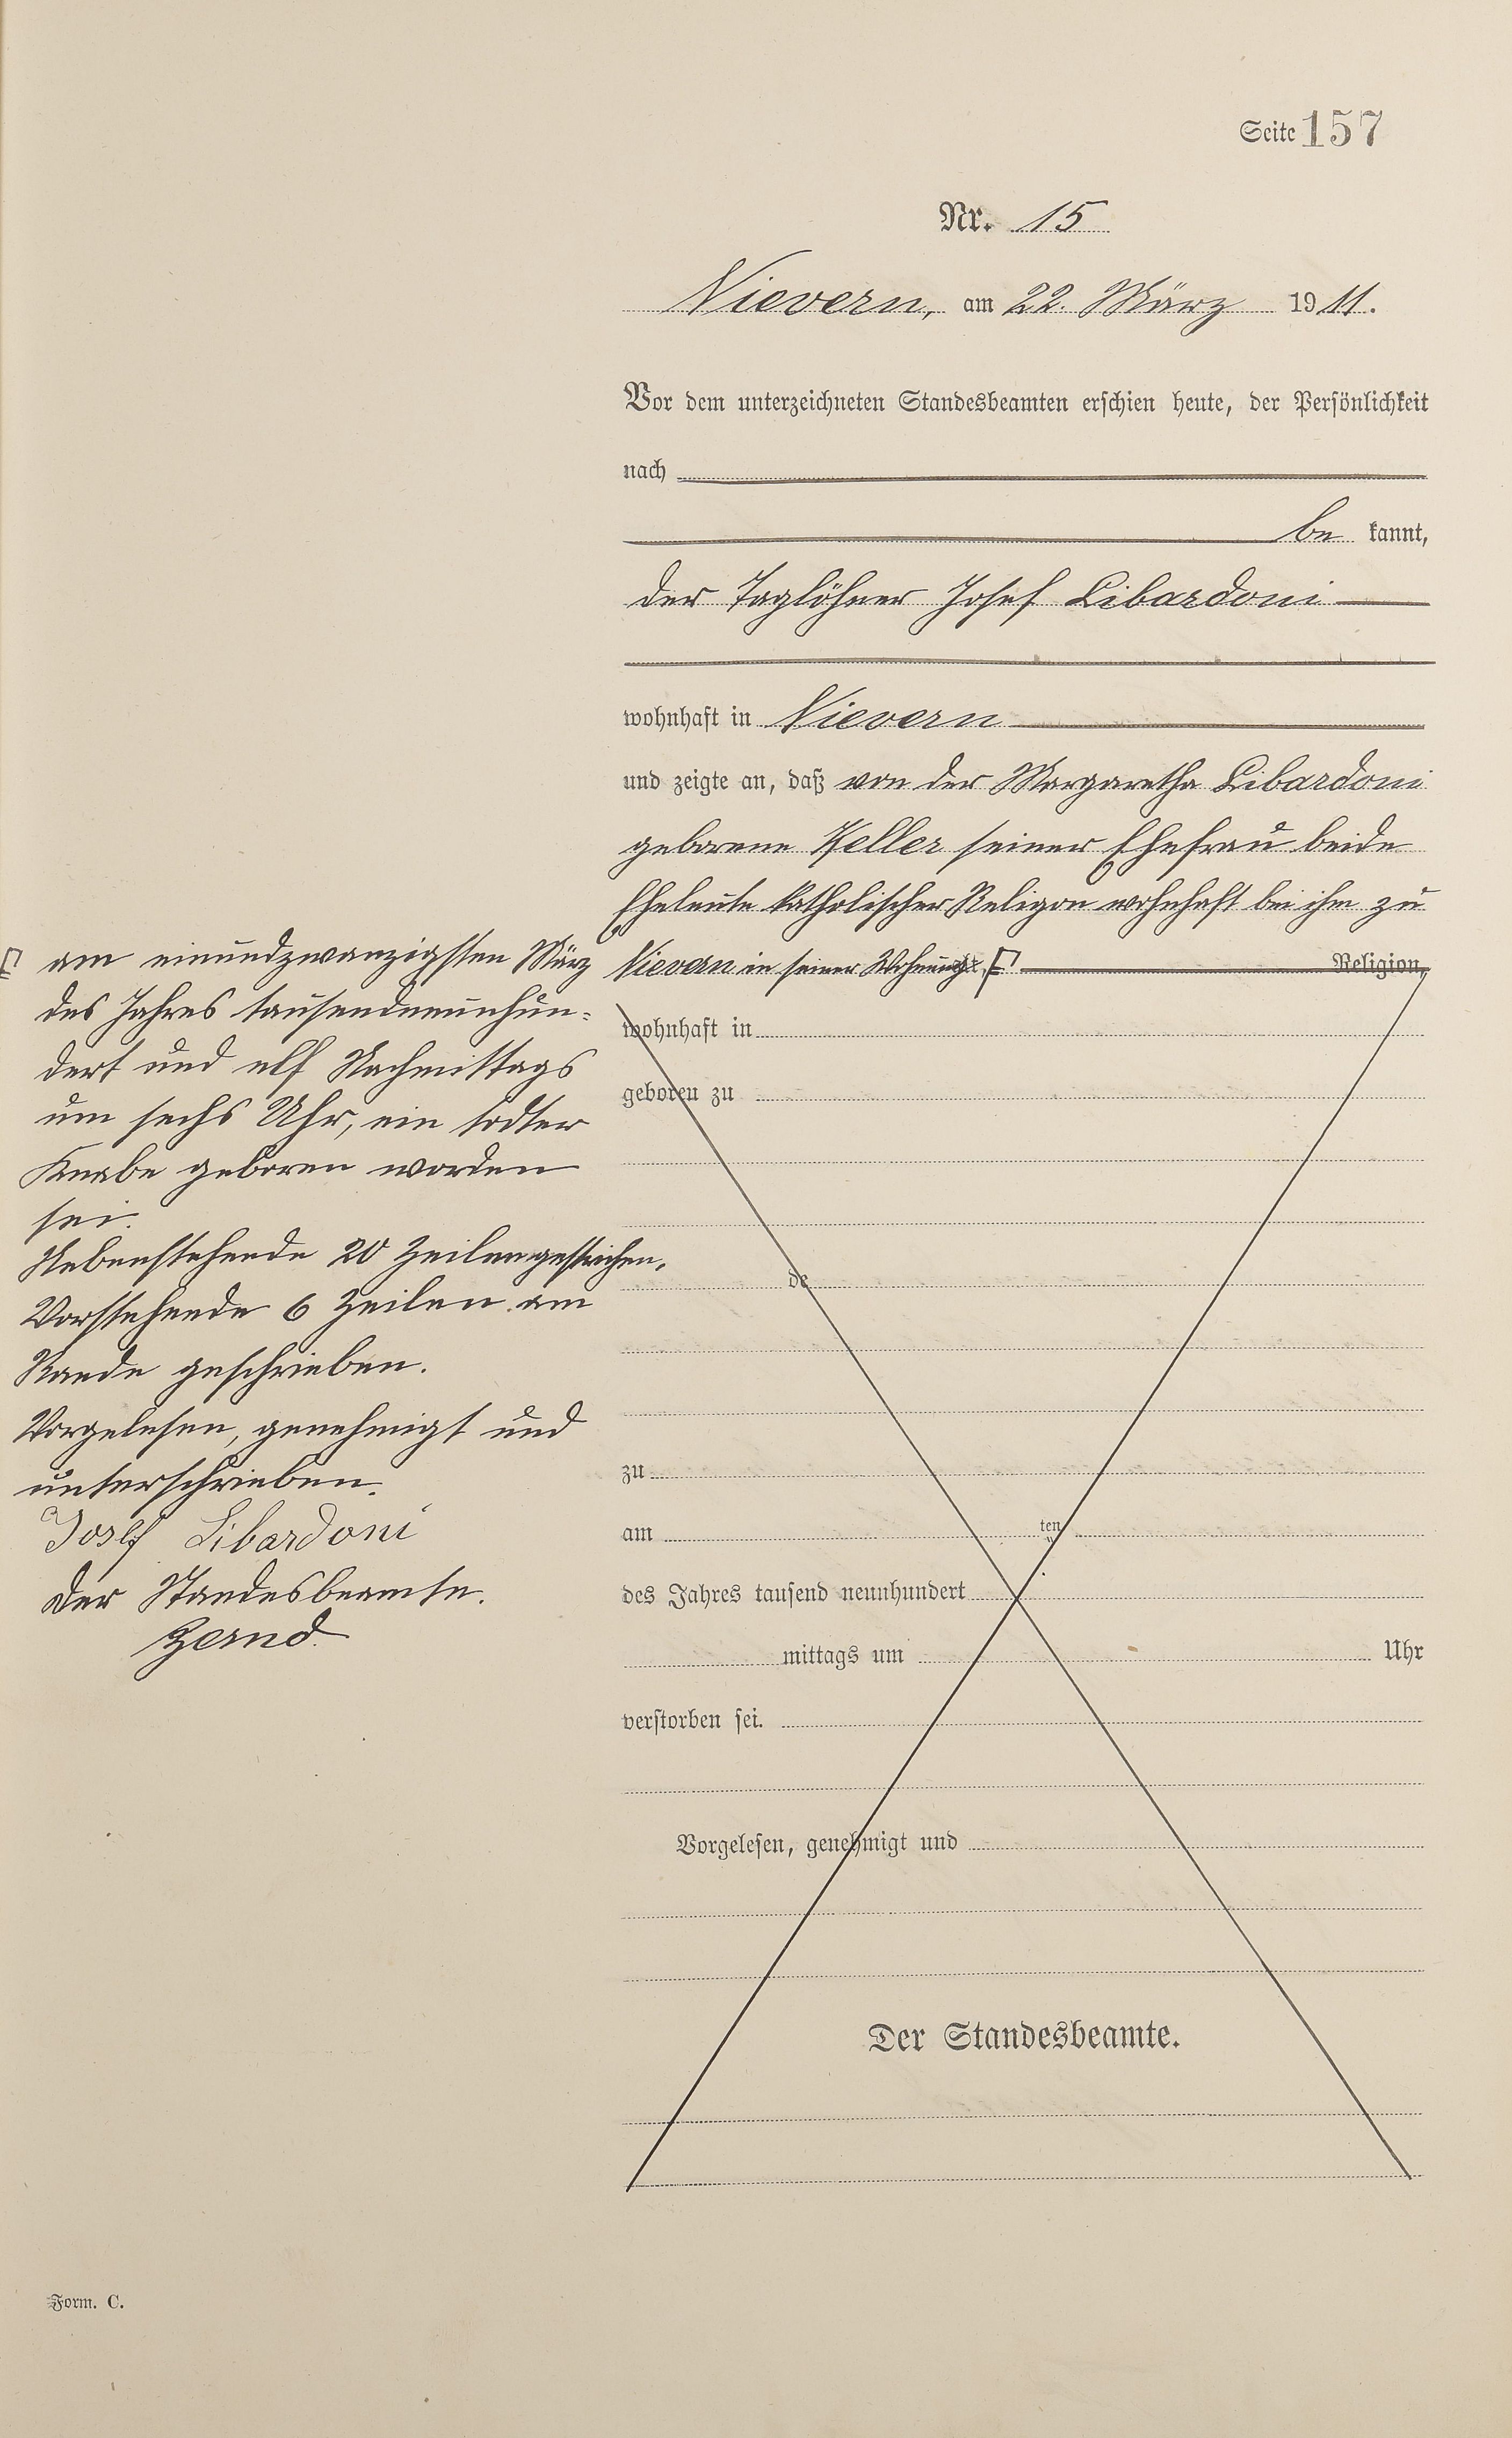 Seite 157
Nr. 15
Nievern, am 22. März 1911.
Vor dem unterzeichneten Standesbeamten erschien heute, der Persönlichkeit
nach
be kannt,
der Taglöhner Josef Libardoni
wohnhaft in Nievern
und zeigte an, daß von der Margaretha Libardoni
geborene Keller seiner Ehefrau beide
Eheleute katholischer Religion wohnhaft bei ihm zu
Nievern in seiner Wohnung Religion,
wohnhaft in
geboren zu
de
zu
am ten
des Jahres tausend neunhundert
mittags um Uhr
verstorben sei.
Vorgelesen, genehmigt und
Der Standesbeamte.
am einundzwanzigsten März
des Jahres tausendneunhun-
dert und elf Nachmittags
um sechs Uhr, ein todter
Knabe geboren worden
sei.
Nebenstehende 20 Zeilen gestrichen.
Vorstehende 6 Zeilen am
Rande geschrieben.
Vorgelesen, genehmigt und
unterschrieben.
Josef Libardoni
Der Standesbeamte.
Form. C.